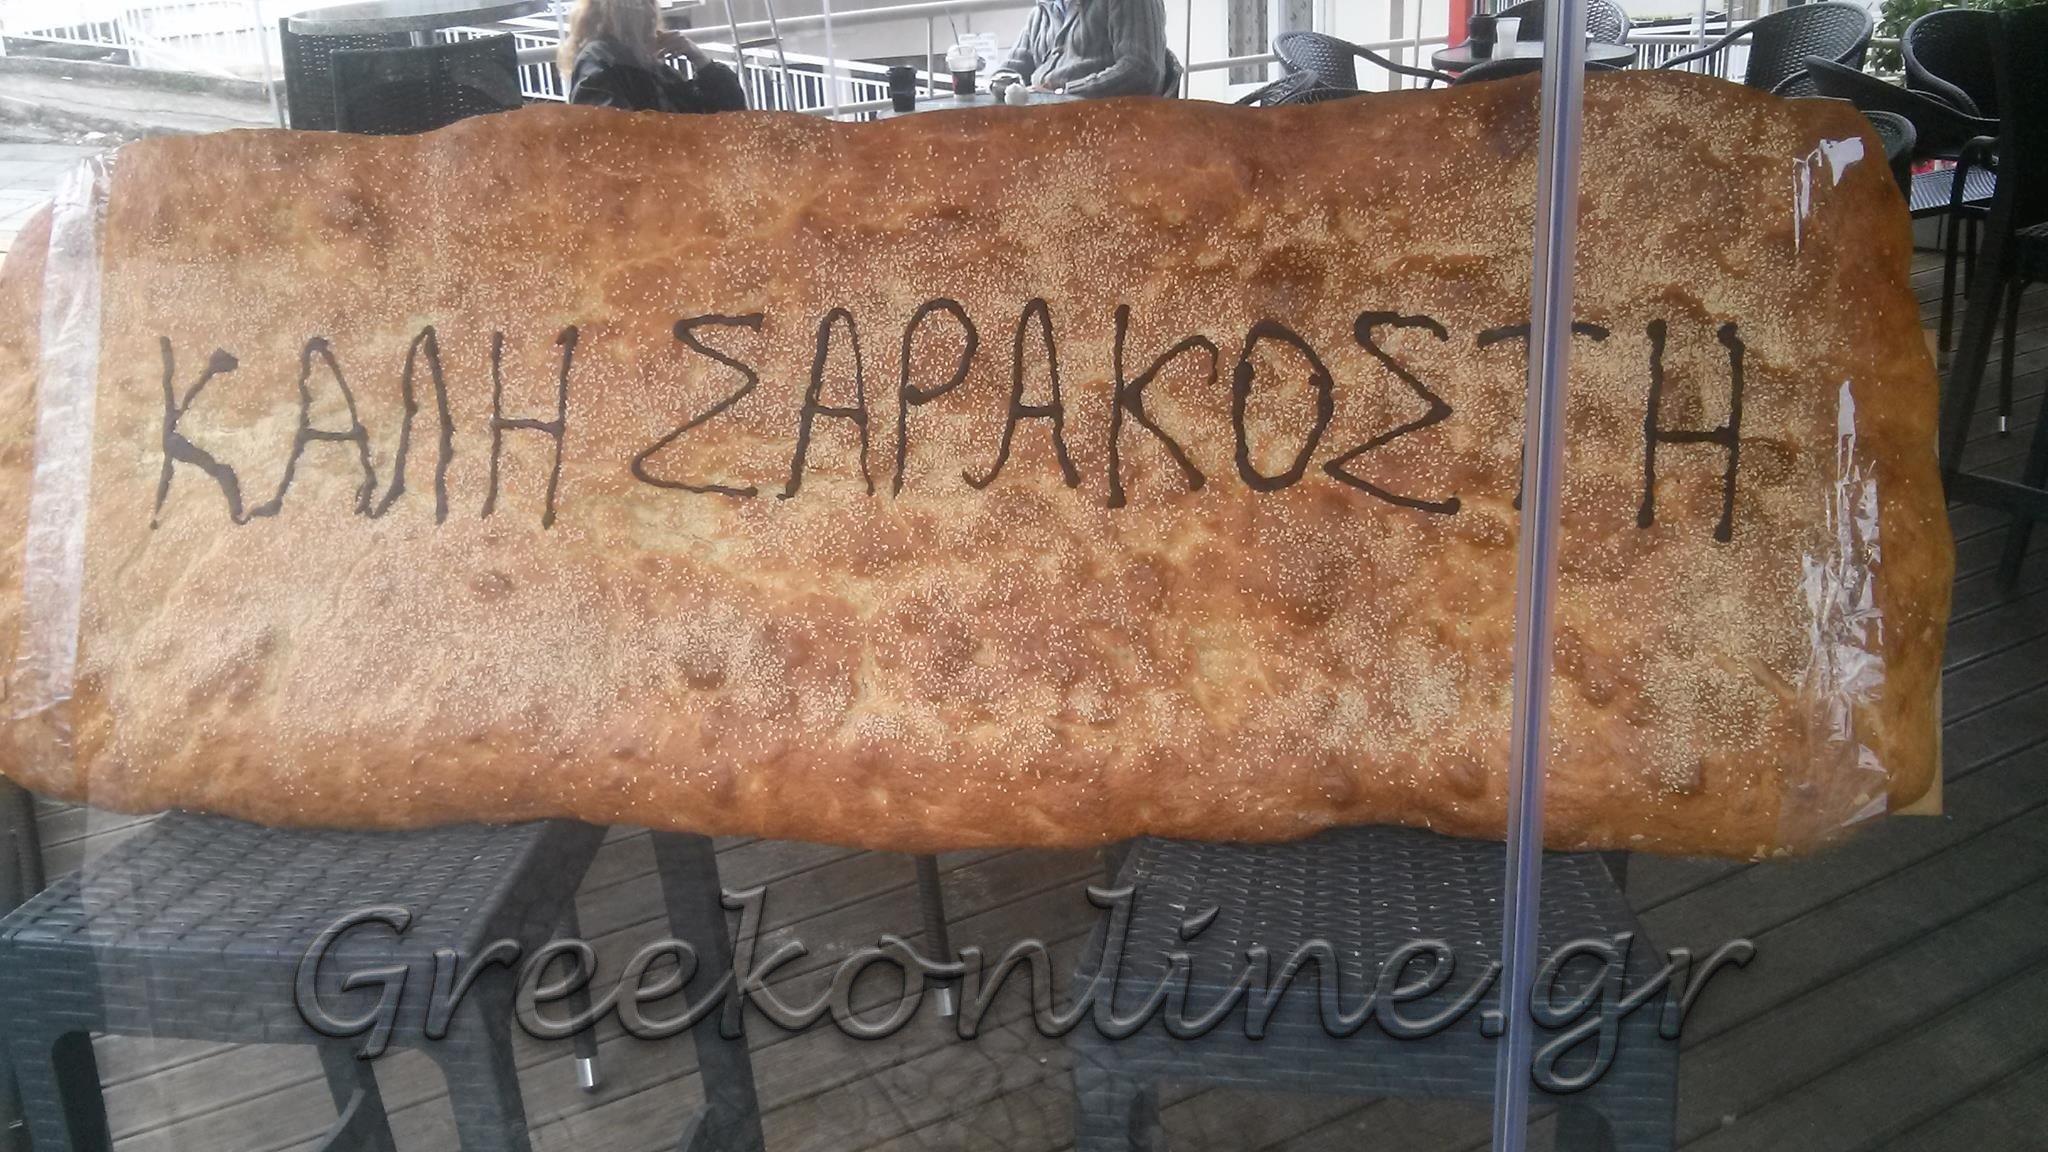 ΚΑΛΗ ΣΑΡΑΚΟΣΤΗ
Greekonline.gr